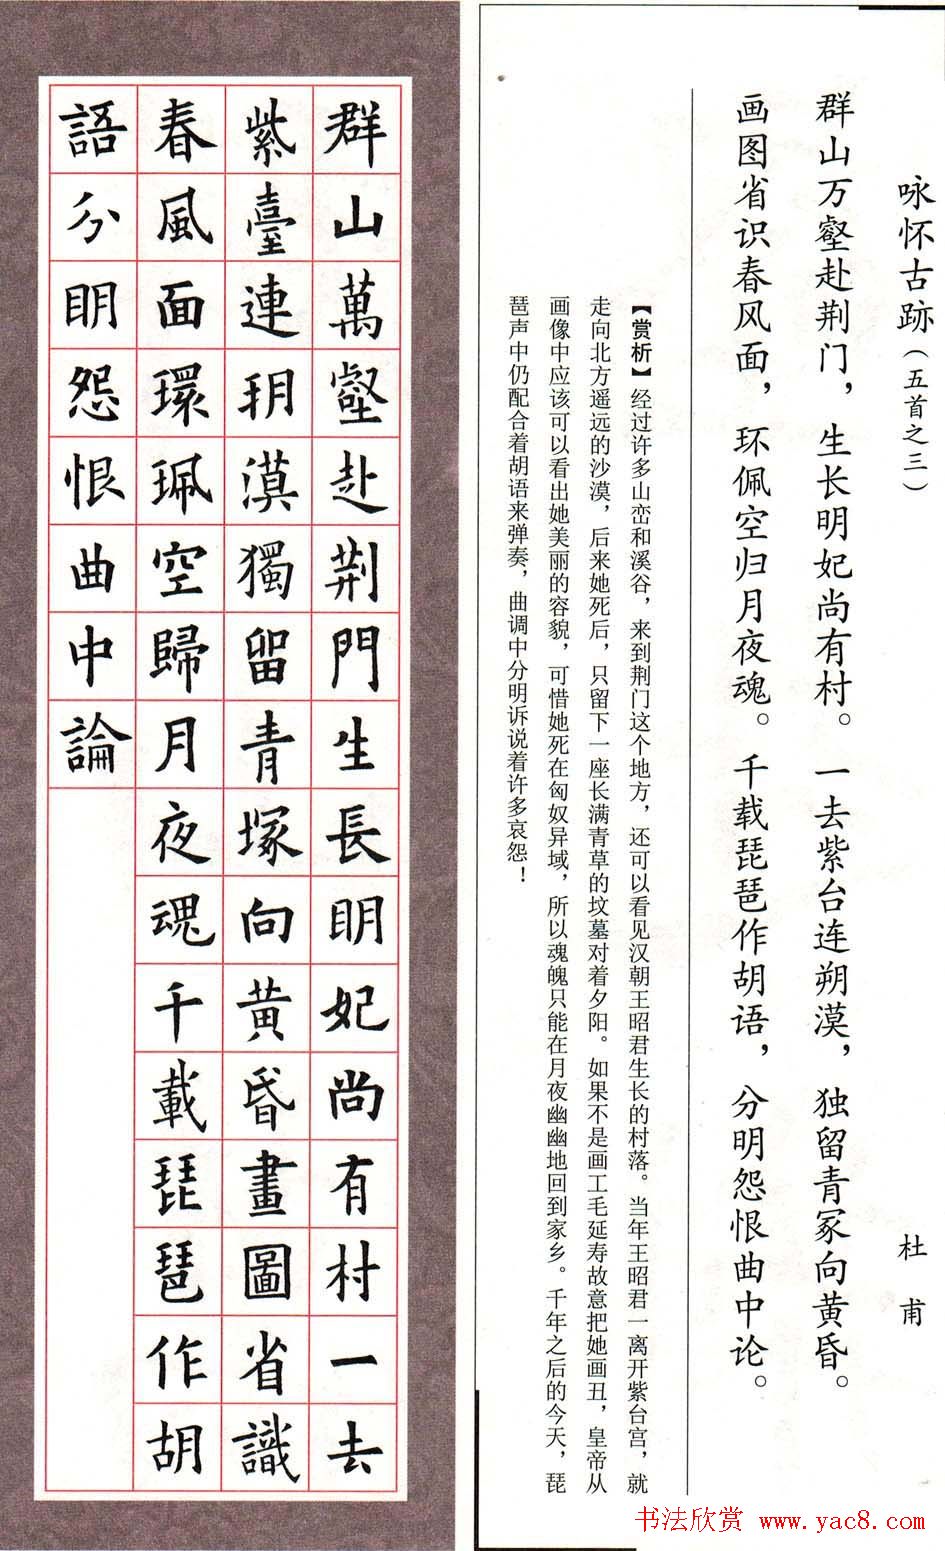 咏怀古跡（五首之三）
杜甫
群山万壑赴荆门，生长明妃尚有村。一去紫台连朔漠，独留青冢向黄昏。
画图省识春风面，环佩空归月夜魂。千载琵琶作胡语，分明怨恨曲中论。
【赏析】经过许多山峦和溪谷，来到荆门这个地方，还可以看见汉朝王昭君生长的村落。当年王昭君一离开紫台宫，就
走向北方遥远的沙漠，后来她死后，只留下一座长满青草的坟墓对着夕阳。如果不是画工毛延寿故意把她画丑，皇帝从
画像中应该可以看出她美丽的容貌，可惜她死在匈奴异域，所以魂魄只能在月夜幽幽地回到家乡。千年之后的今天，琵
琶声中仍配合着胡语来弹奏，曲调中分明诉说着许多哀怨！
群山萬壑赴荆門生長明妃尚有村一去
紫臺連朔漠獨留青塚向黃昏畫圖省識
春風面環珮空歸月夜魂千載琵琶作胡
語分明怨恨曲中論
书法欣赏 www.yac8.com